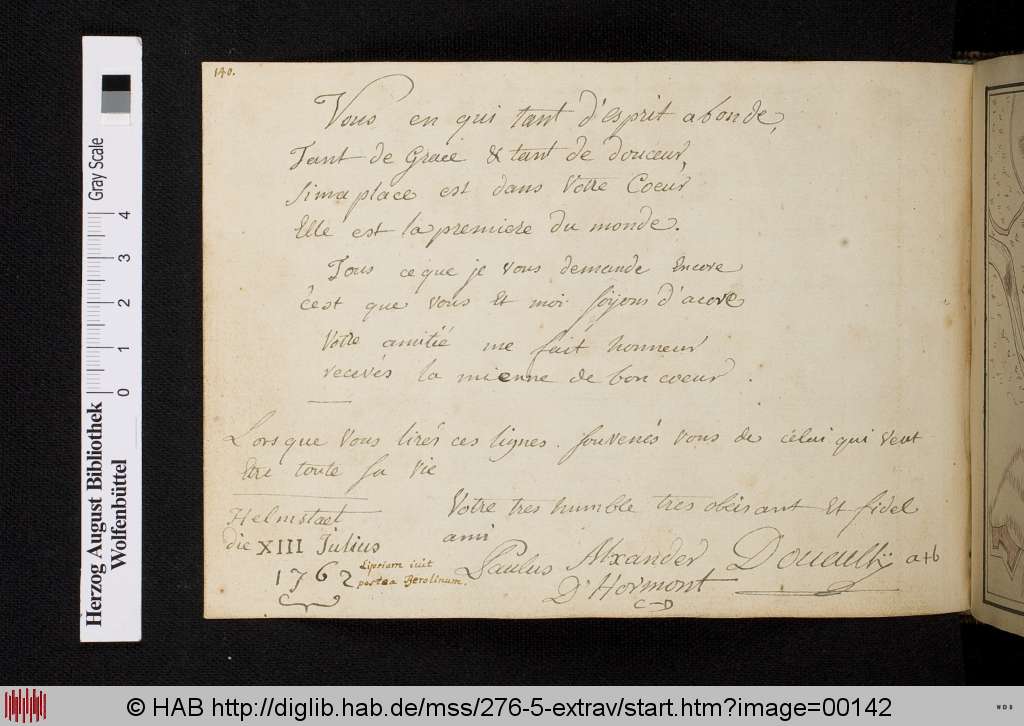 140.
Vous en qui tant d'esprit abonde,
Tant de Grace & tant de douceur,
Si ma place est dans Votre Coeur
Elle est la premiere du monde.
Tous ce que je vous demande Encore
c'est que vous Et moi soijons d'acore
Votre amitié me fait honneur
recevés la mienne de bon coeur.
Lors que Vous lirés ces lignes. souvenés vous de celui qui veut
Etre toute sa vie
Votre tres humble tres obeisant Et fidel
ami
Helmstaet
die XIII Julius
1762
Lipsiam ivit
postea Berolinum.
Paulus Alxander
D'Hormont
a+b
c-D
Gray Scale
0 1 2 3 4
Herzog August Bibliothek
Wolfenbüttel
© HAB http://diglib.hab.de/mss/276-5-extrav/start.htm?image=00142
WDB